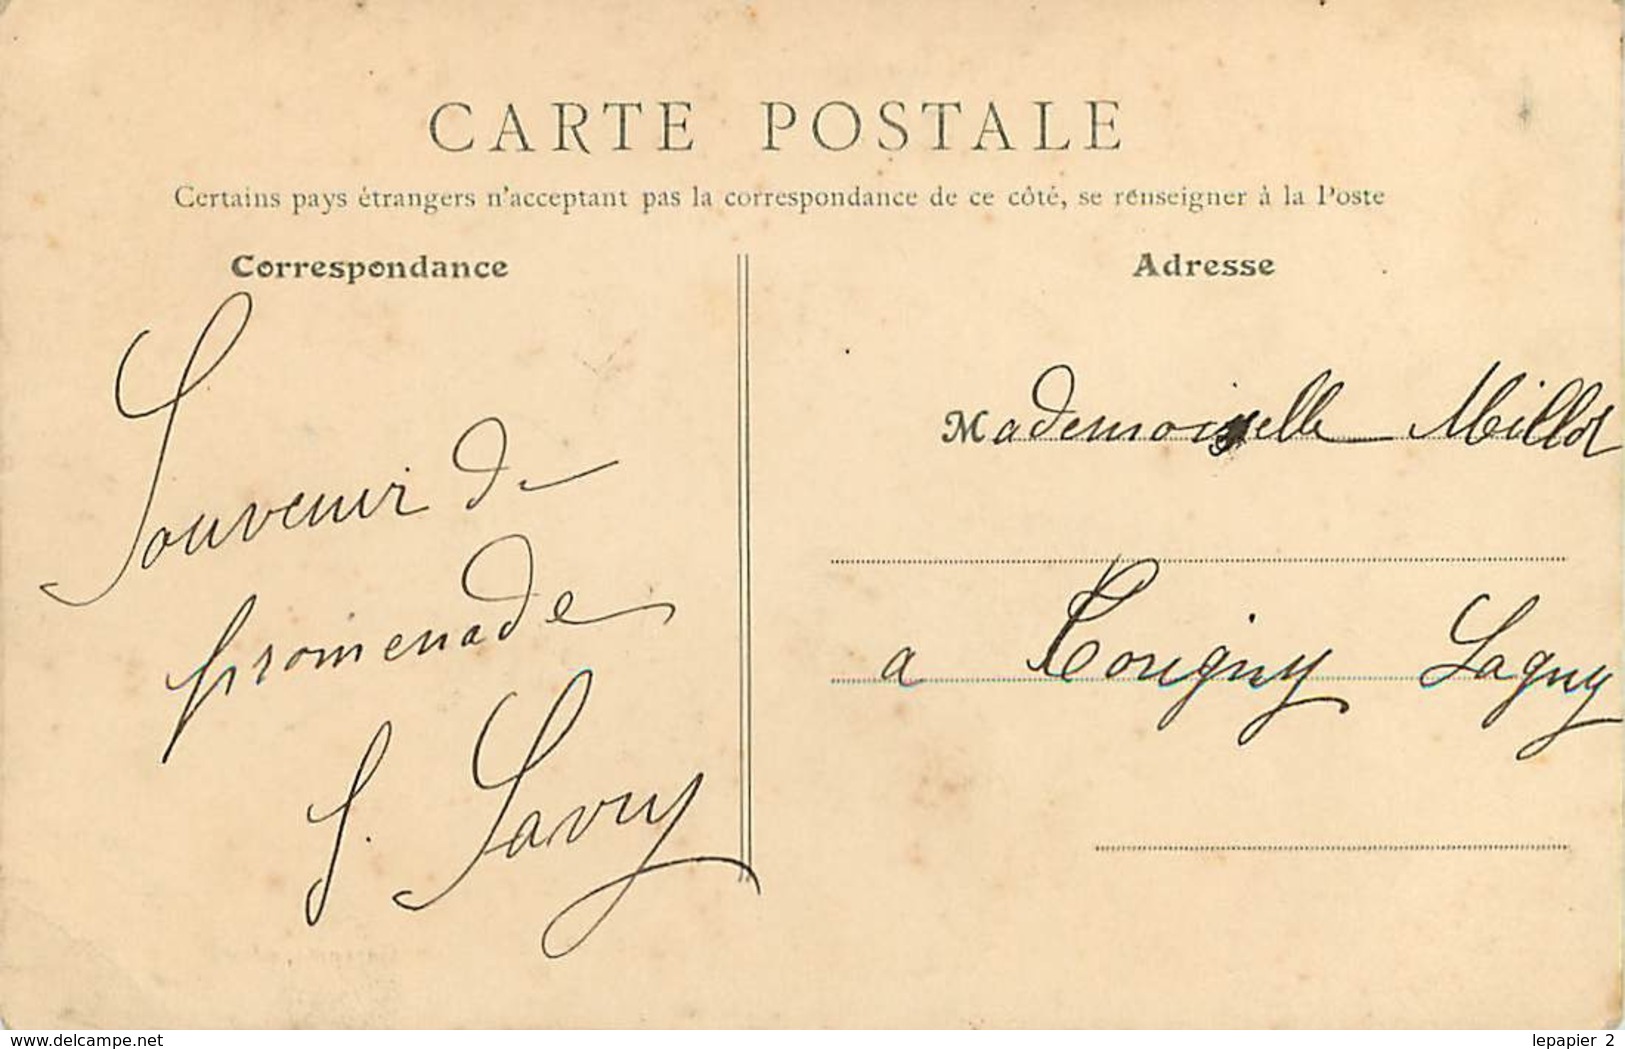 CARTE POSTALE
Certains pays étrangers n'acceptant pas la correspondance de ce côté, se renseigner à la Poste
Correspondance
Souvenir de
promenade
S. Savry
Adresse
Mademoiselle Millot
a Torigny Lagny
www.delcampe.net
lepapier_2